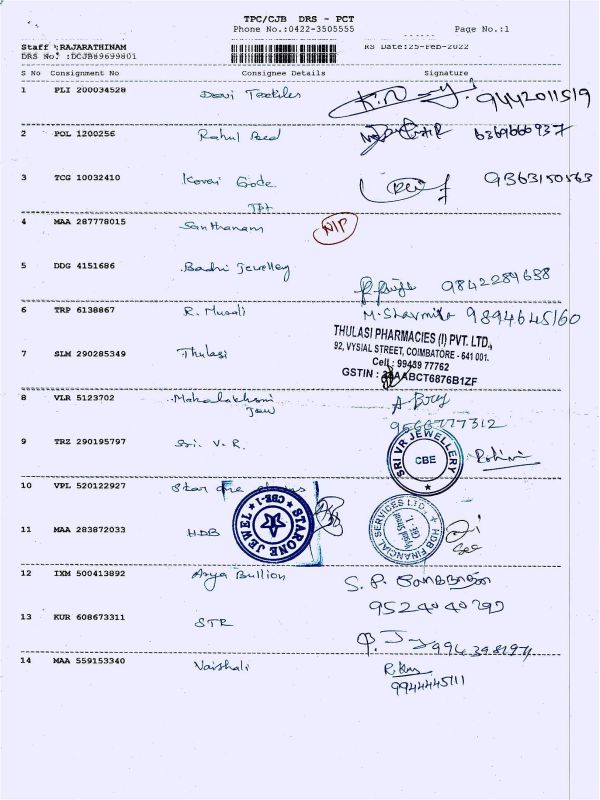 TPC/CJB DRS - PCT
Phone No.:0422-3505555 Page No.:1
Staff :RAJARATHINAM RS Date:25-Feb-2022
DRS No. :DCJB89699801
S No Consignment No Consignee Details Signature
1 PLI 200034528 Devi Textiles 9442011519
2 POL 1200256 Rahul 6369660937
3 TCG 10032410 Kovai Gode 9363150563
TPT
4 MAA 287778015 Santhanam N/P
5 DDG 4151686 Badri Jewellery 9842289658
6 TRP 6138867 R. Murali M. Sharmila 9894645160
THULASI PHARMACIES (I) PVT. LTD.,
7 SLM 290285349 Thulasi 92, VYSIAL STREET, COIMBATORE - 641 001.
Cell : 99439 77762
GSTIN : AABCT6876B1ZF
8 VLR 5123702 Mahalakshmi
Jew
9566777312
9 TRZ 290195797 Sri. V.R. SRI VR JEWELLERY CBE Rohini
10 VPL 520122927 Star one
STARONE JEWEL CBE-1
11 MAA 283872033 HDB HDB FINANCIAL SERVICES LTD.,
12 IXM 500413892 Arya Bullion S. P.
9524040292
13 KUR 608673311 STR
9943981971
14 MAA 559153340 Vaishali
9944445111